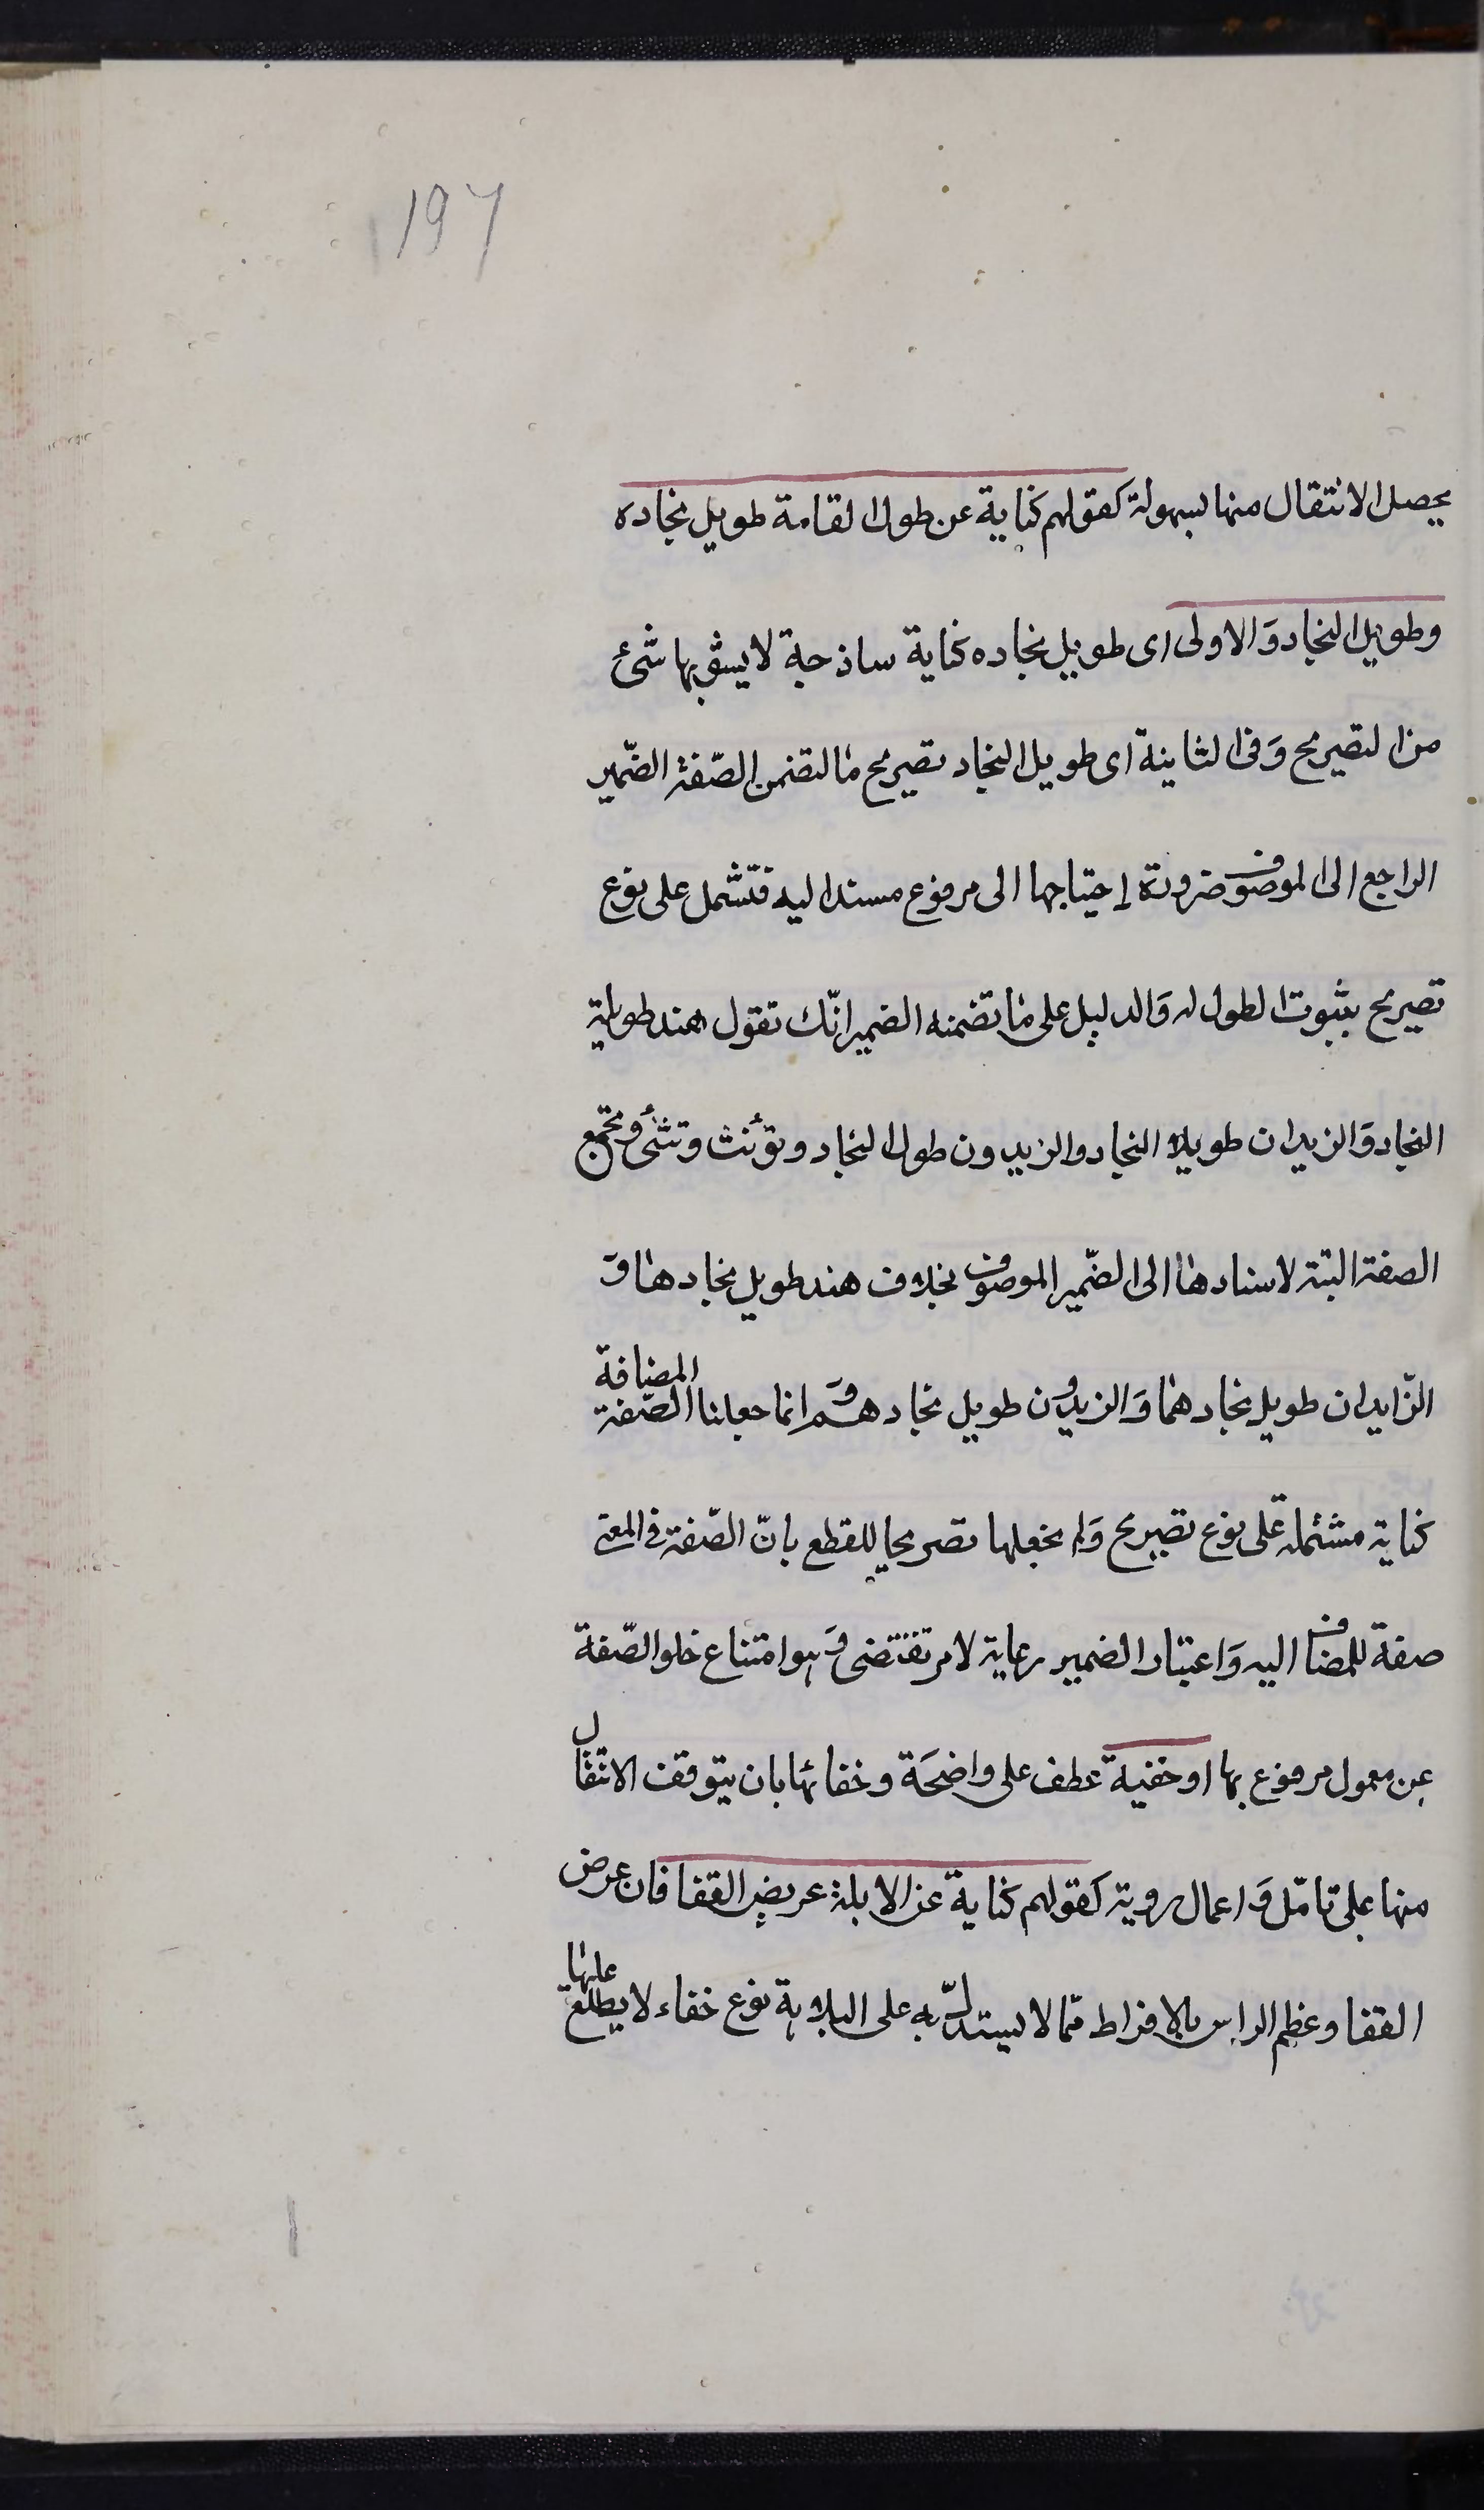 197
يحصل الانتقال منها بسهولة كقولهم كناية عن طول القامة طويل نجاده
وطويل النجاد وَالاولى اى طويل نجاده كناية ساذجة لا يشوبها شئ
من التصريح وَفى الثانية اى طويل النجاد تصريح مٰا لتضمن الصّفة الضّمير
الراجع الى الموصوف ضرورة احتياجها الى مرفوع مسند اليه فتشمل على نوع
تصريح بثبوت الطول له وَالدليل على مٰا تضمنه الضمير انّك تقول هند طويلة
النجاد وَالزيدان طويلا النجاد والزيدون طول النجاد وتؤنث وتثنىٰ وتجمع
الصفة البتة لاسنادهٰا الى الضّمير الموصوف بخلاف هند طويل نجادهٰا وَ
الزّايدان طويل نجادهمٰا وَالزيدون طويل نجادهم وَانما جعلنا الصّفة المضافة
كناية مشتملة على نوع تصريح وَلم نجعلها تصريحا للقطع بانّ الصّفة فى المعنى
صفة للمضاف اليه وَاعتبار الضمير رعاية لامر تقتضى وَهو امتناع خلو الصّفة
عن معمول مرفوع بها او خفية عطف على واضحَة وخفائها بان يتوقف الانتقال
منها على تامّل وَاعمال روية كقولهم كناية عن الابلة عريض القفا فان عرض
القفا وعظم الراس بالافراط ممّا لا يستدلّ به على البلاهة نوع خفاء لا يطلع عليهٰا